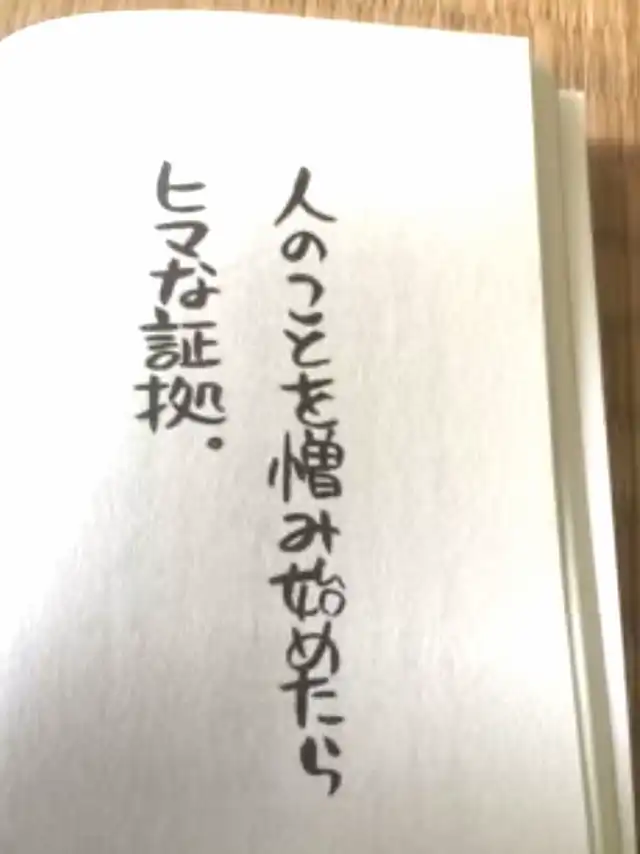 人のことを憎み始めたら
ヒマな証拠.